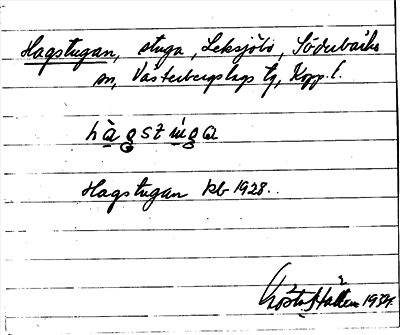 Hagstugan, stuga, Leksjöbo, Söderbärke
sn, Västerbergslags tg, Kopp. l.
Hagstugan kb 1928.
Gösta 1934.